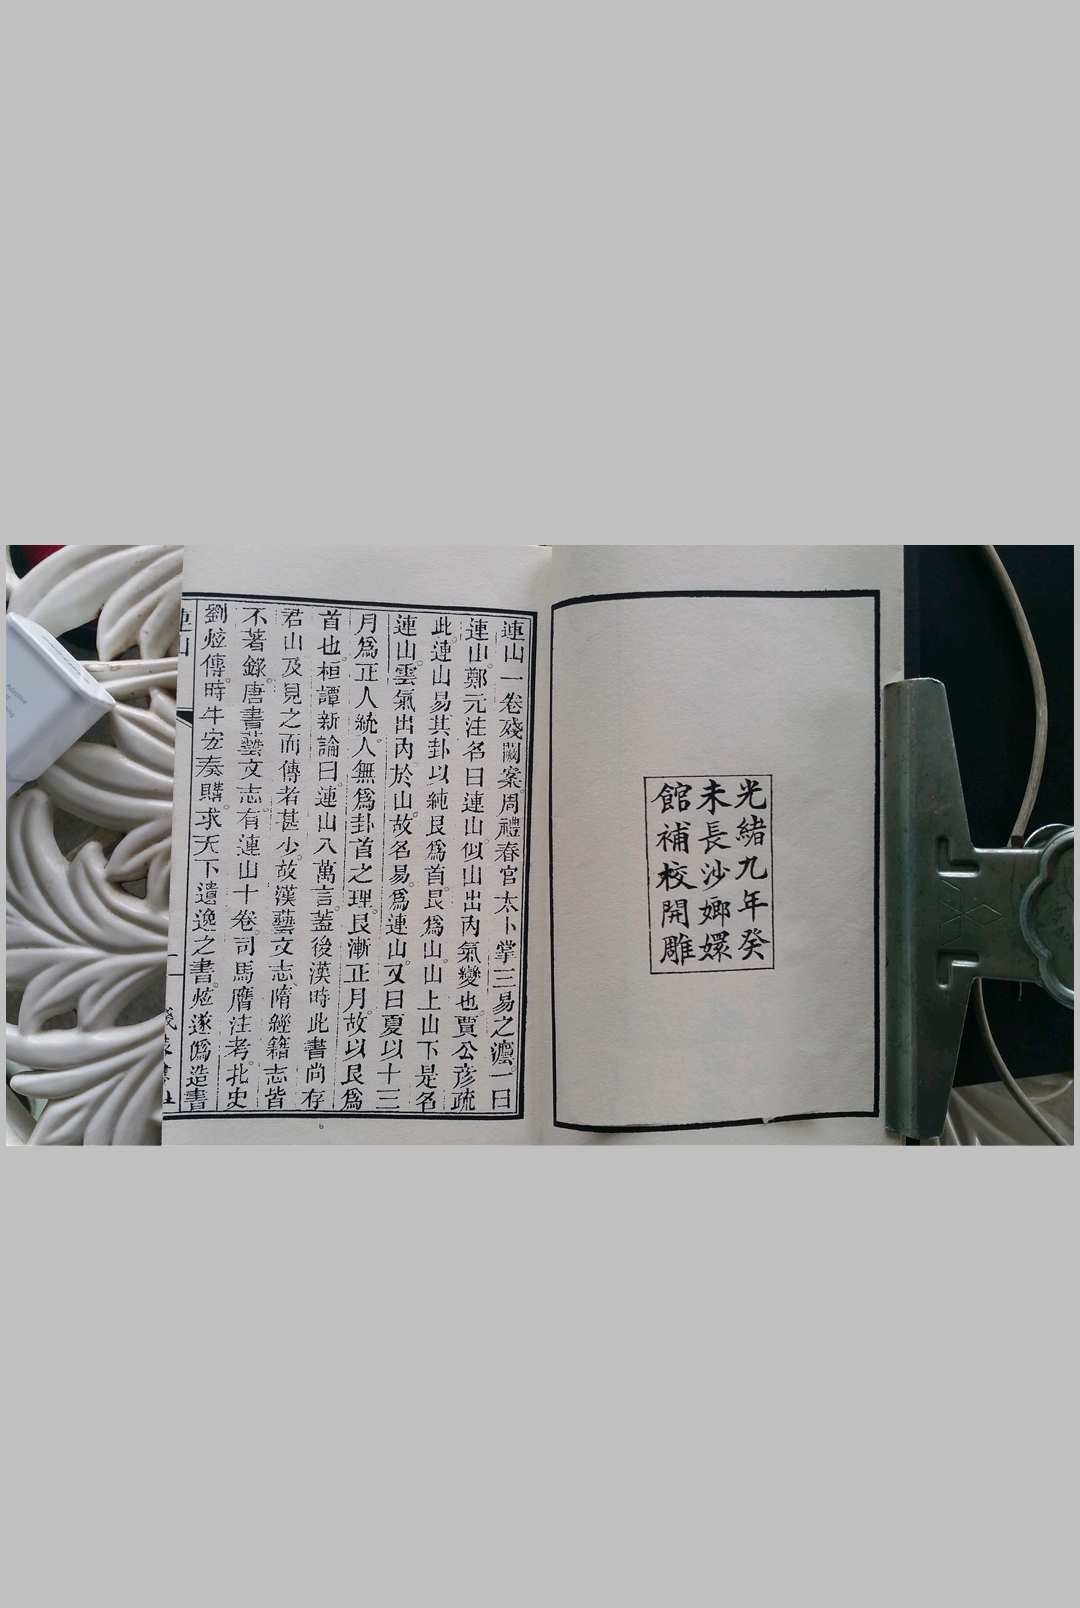 光緒九年癸
未長沙嫏嬛
館補校開雕
連山一卷殘闕案周禮春官太卜掌三易之灋一曰
連山鄭元注名曰連山似山出內氣變也賈公彥疏
此連山易其卦以純艮爲首艮爲山山上山下是名
連山雲氣出內於山故名易爲連山又曰夏以十三
月爲正人統人無爲卦首之理艮漸正月故以艮爲
首也桓譚新論曰連山八萬言蓋後漢時此書尚存
君山及見之而傳者甚少故漢藝文志隋經籍志皆
不著錄唐書藝文志有連山十卷司馬膺注考北史
劉炫傳時牛宏奏購求天下遺逸之書炫遂僞造書
連山